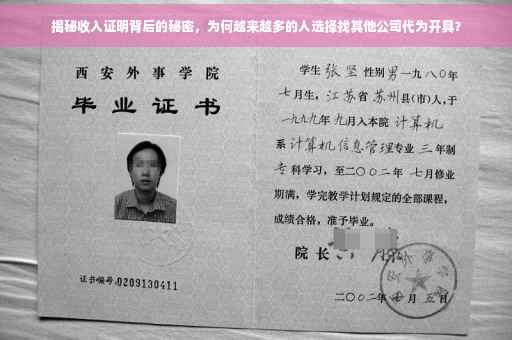 揭秘收入证明背后的秘密，为何越来越多的人选择找其他公司代为开具？
西安外事学院
毕业证书
证书编号:0209130411
学生张坚性别男一九八〇年
七月生，江苏省苏州县(市)人,于
一九九九年九月入本院计算机
系计算机信息管理专业三年制
专科学习，至二〇〇二年七月修业
期满，学完教学计划规定的全部课程，
成绩合格，准予毕业。
院长
二〇〇二年 月五日